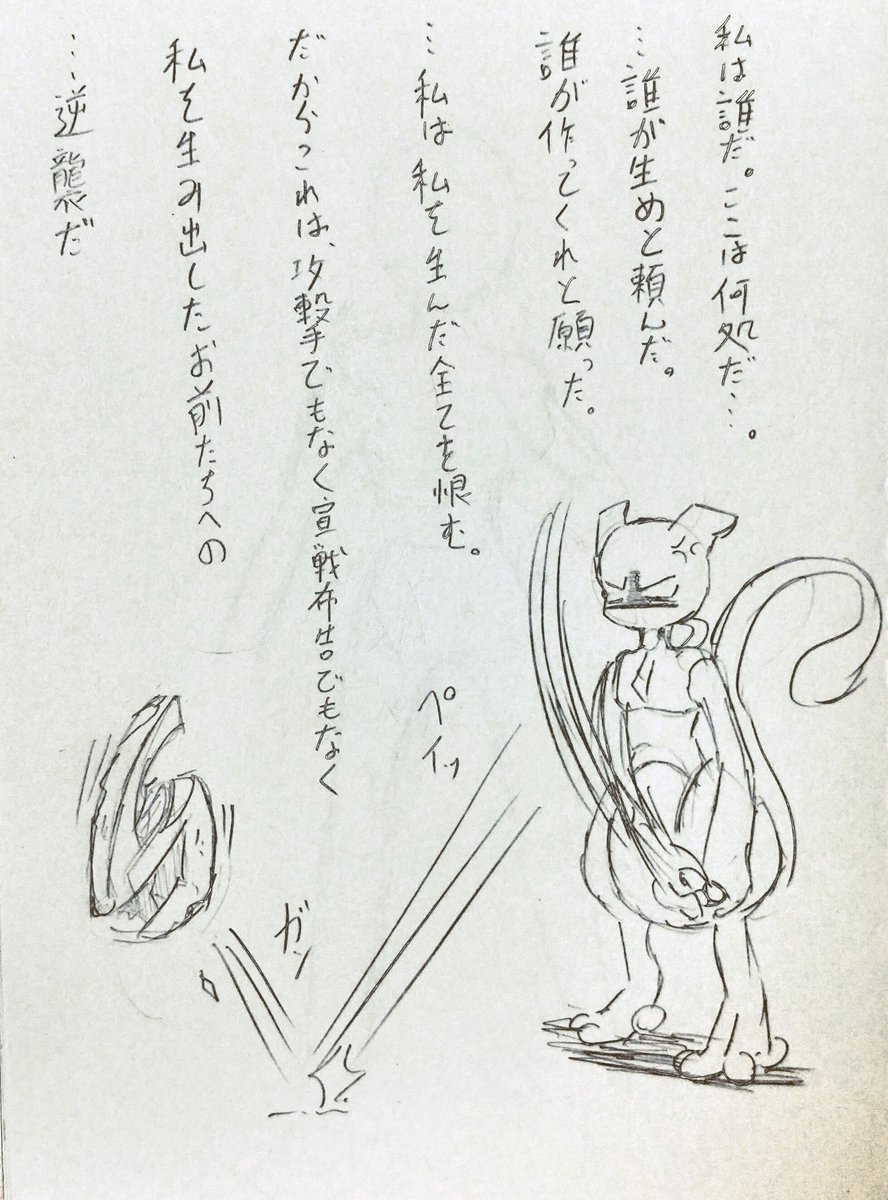 私は誰だ。ここは何処だ…。
…誰が生めと頼んだ。
誰が作ってくれと願った。
…私は私を生んだ全てを恨む。
だからこれは、攻撃でもなく宣戦布告でもなく
私を生み出したお前たちへの
…逆襲だ
ペイッ
ガン